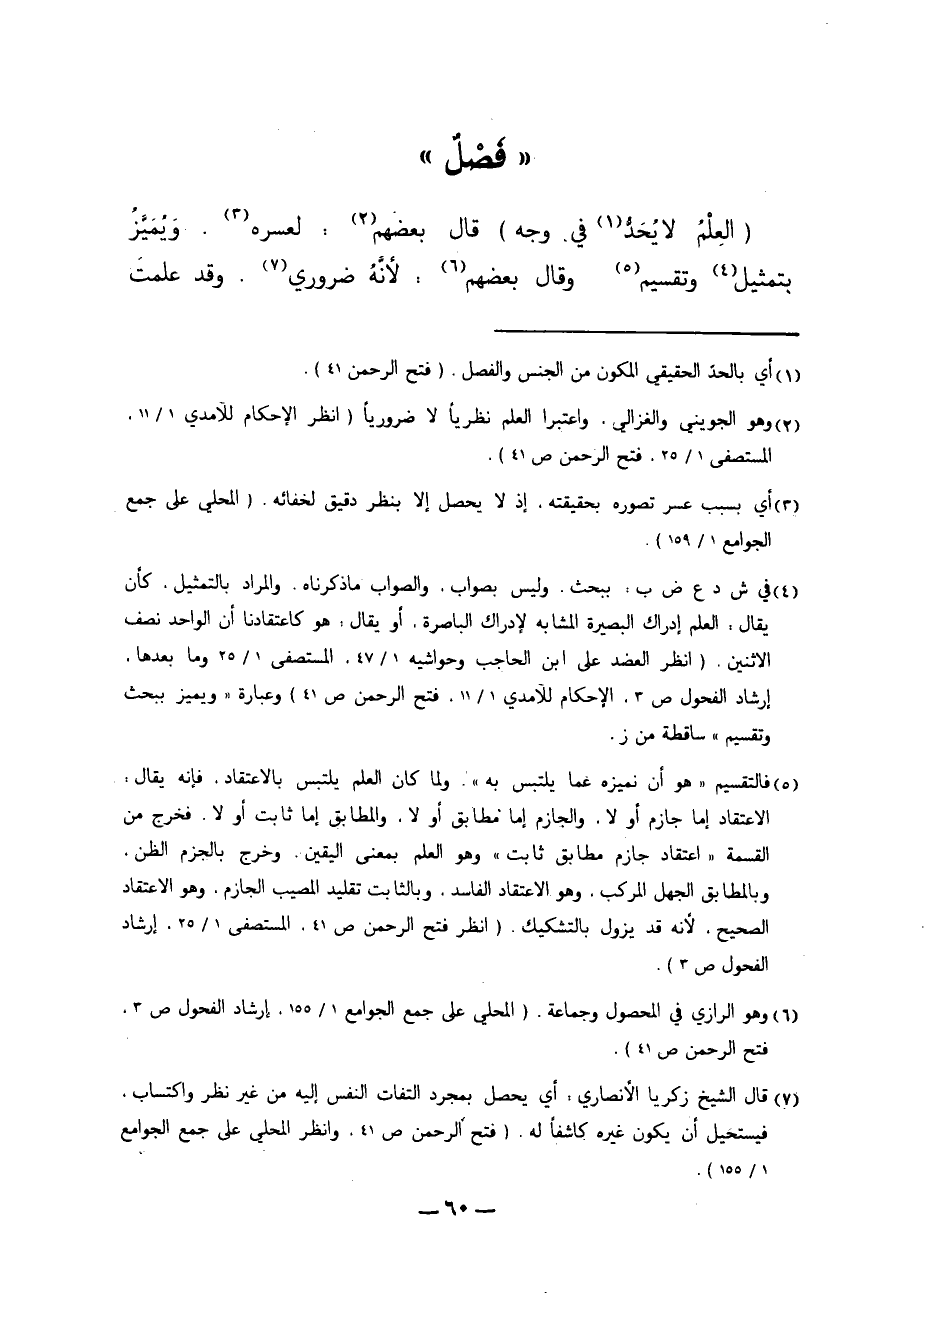 « فَصْلٌ »
( العِلْمُ لا يُحَدُّ(١) في وجه ) قال بعضهم(٢) : لعسره(٣) . وَيُمَيَّزُ
بتمثيل(٤) وتقسيم(٥) وقال بعضهم(٦) : لأنَّهُ ضروري(٧) . وقد علمتَ
(١) أي بالحدّ الحقيقي المكون من الجنس والفصل . ( فتح الرحمن ٤١ ) .
(٢) وهو الجويني والغزالي ، واعتبرا العلم نظرياً لا ضرورياً ( انظر الإحكام للآمدي ١ / ١١ ،
المستصفى ١ / ٢٥ ، فتح الرحمن ص ٤١ ) .
(٣) أي بسبب عسر تصوره بحقيقته ، إذ لا يحصل إلا بنظر دقيق لخفائه . ( المحلي على جمع
الجوامع ١ / ١٥٩ ) .
(٤) في ش د ع ض ب : ببحث . وليس بصواب ، والصواب ماذكرناه . والمراد بالتمثيل ، كأن
يقال : العلم إدراك البصيرة المشابه لإدراك الباصرة ، أو يقال : هو كاعتقادنا أن الواحد نصف
الاثنين . ( انظر العضد على ابن الحاجب وحواشيه ١ / ٤٧ ، المستصفى ١ / ٢٥ وما بعدها ،
إرشاد الفحول ص ٣ ، الإحكام للآمدي ١ / ١١ ، فتح الرحمن ص ٤١ ) وعبارة « ويميز ببحث
وتقسيم » ساقطة من ز .
(٥) فالتقسيم « هو أن نميزه عما يلتبس به » . ولما كان العلم يلتبس بالاعتقاد ، فإنه يقال :
الاعتقاد إما جازم أو لا ، والجازم إما مطابق أو لا ، والمطابق إما ثابت أو لا . فخرج من
القسمة « اعتقاد جازم مطابق ثابت » وهو العلم بمعنى اليقين . وخرج بالجزم الظن ،
وبالمطابق الجهل المركب ، وهو الاعتقاد الفاسد ، وبالثابت تقليد المصيب الجازم ، وهو الاعتقاد
الصحيح ، لأنه قد يزول بالتشكيك . ( انظر فتح الرحمن ص ٤١ ، المستصفى ١ / ٢٥ ، إرشاد
الفحول ص ٣ ) .
(٦) وهو الرازي في المحصول وجماعة . ( المحلي على جمع الجوامع ١ / ١٥٥ ، إرشاد الفحول ص ٣ ،
فتح الرحمن ص ٤١ ) .
(٧) قال الشيخ زكريا الأنصاري : أي يحصل بمجرد التفات النفس إليه من غير نظر واكتساب ،
فيستحيل أن يكون غيره كاشفاً له . ( فتح الرحمن ص ٤١ ، وانظر المحلي على جمع الجوامع
١ / ١٥٥ ) .
— ٦٠ —